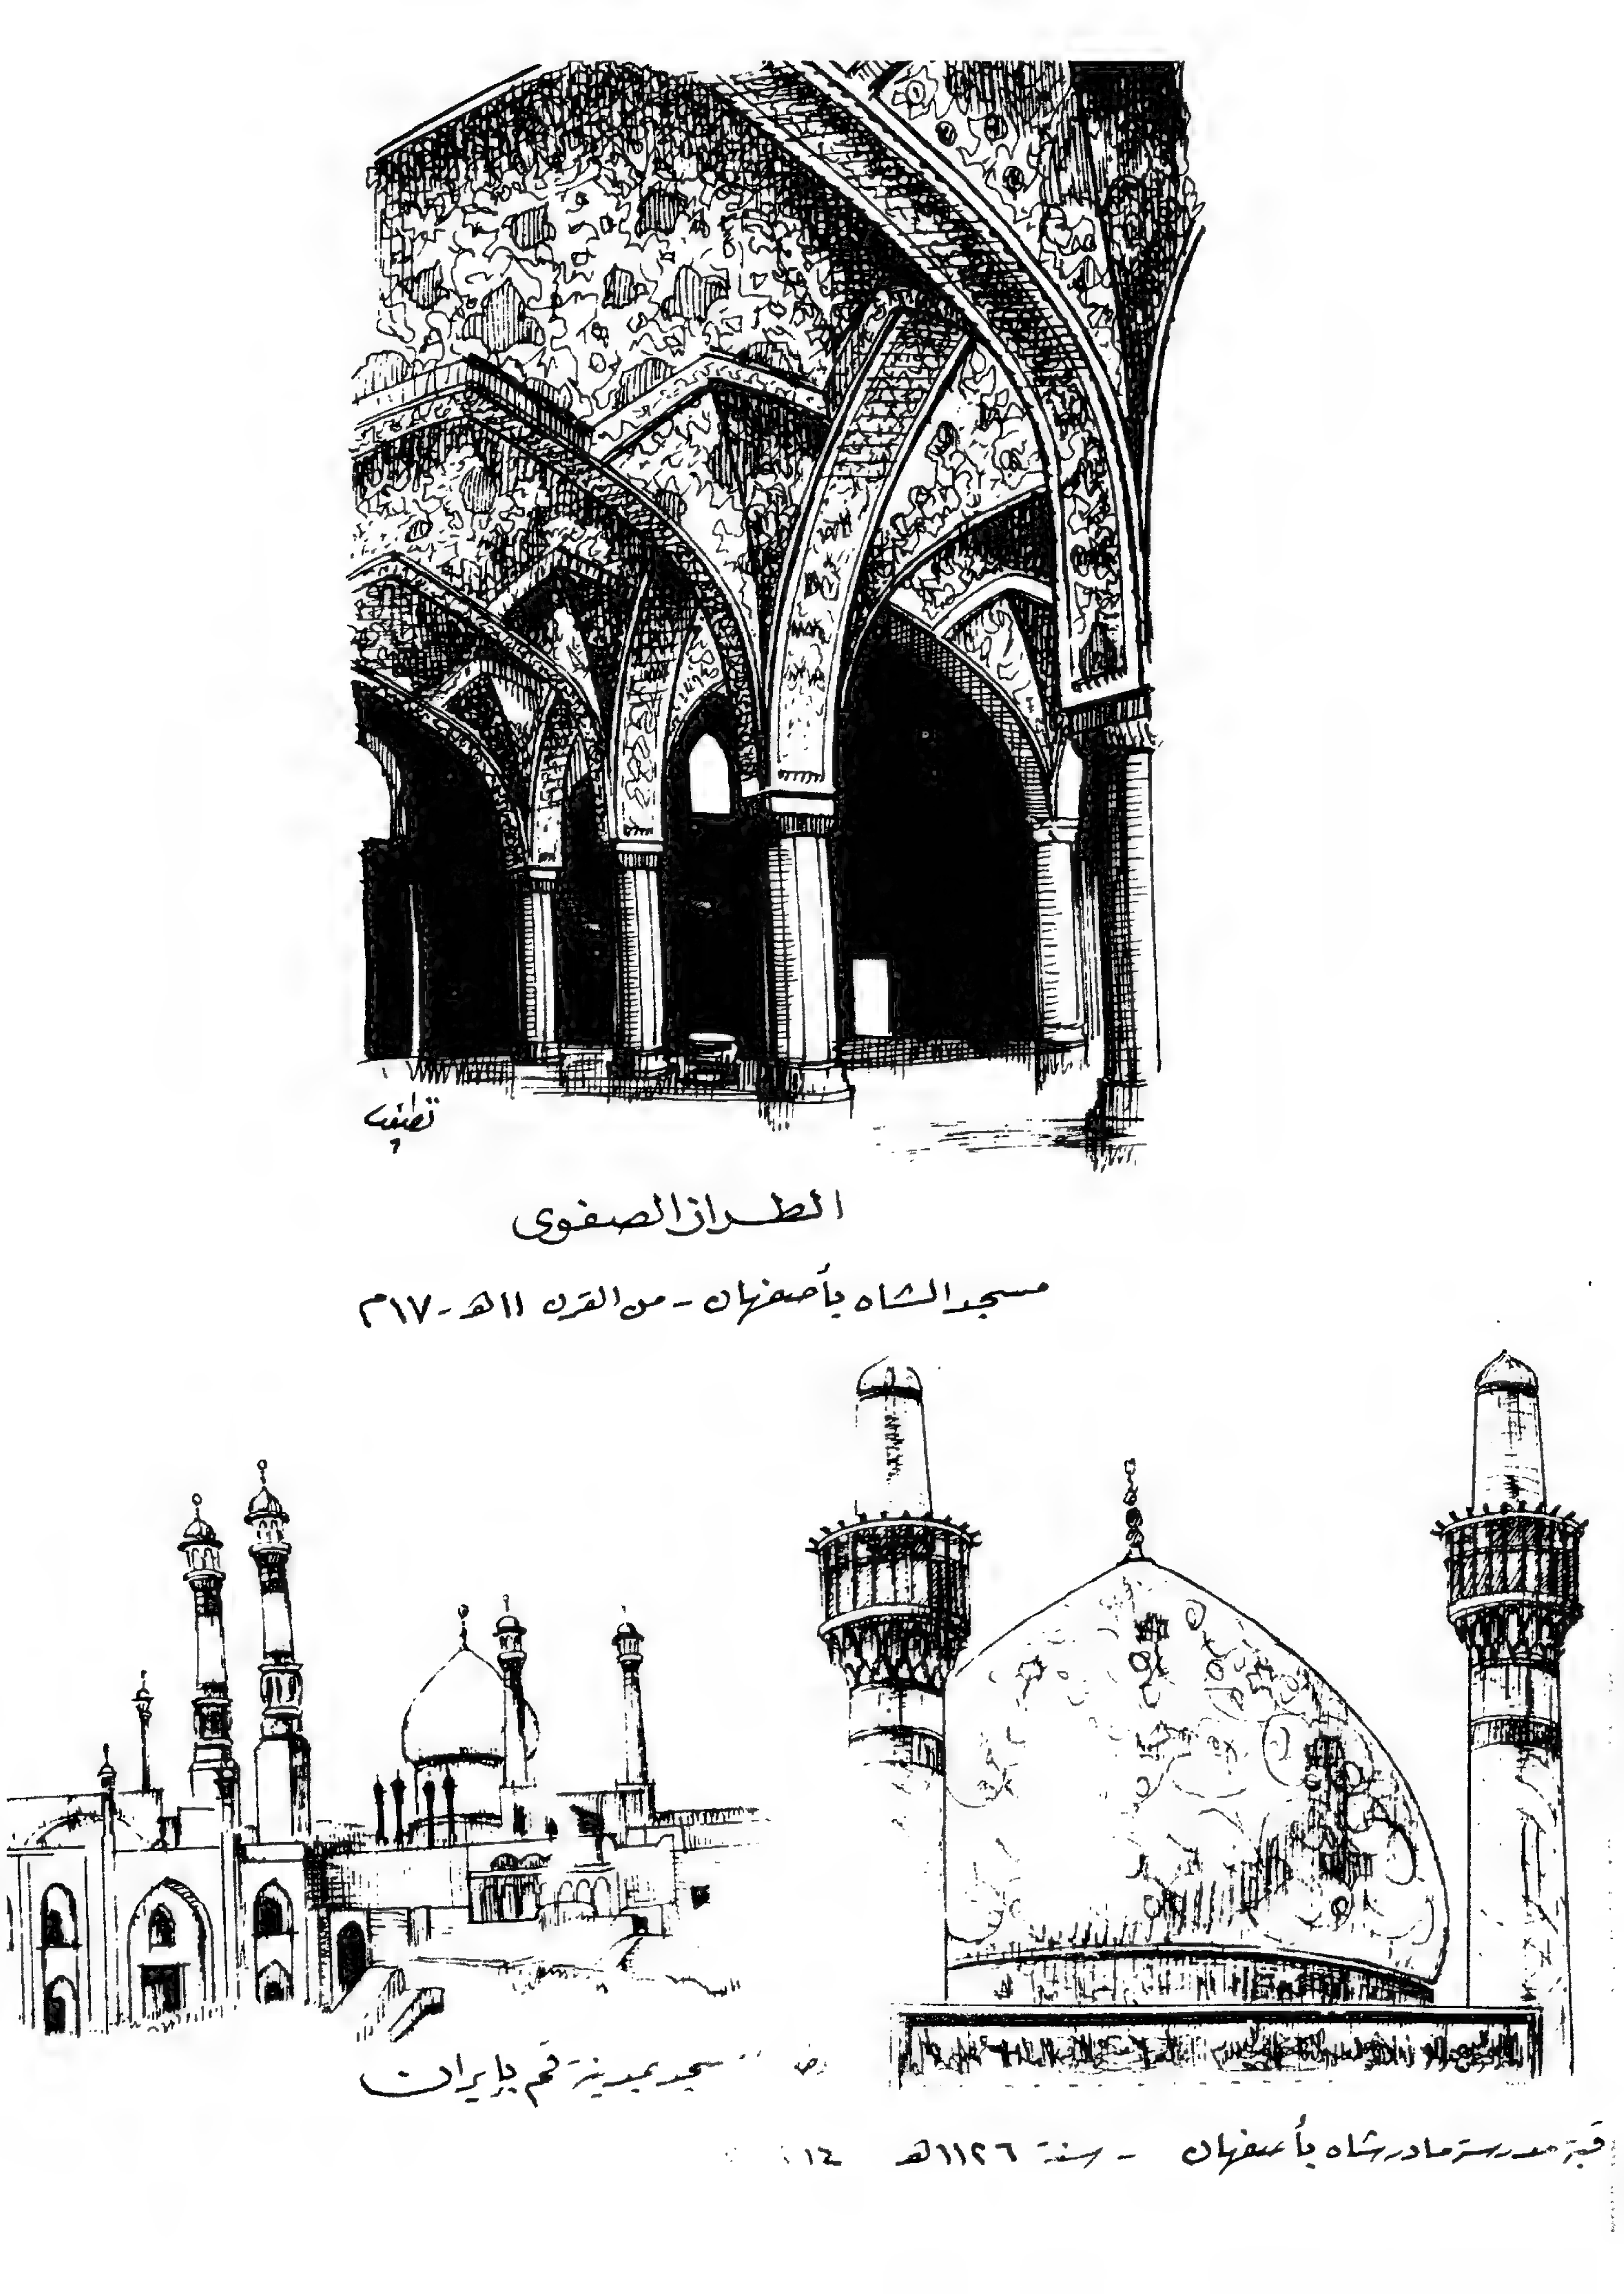 الطراز الصفوى
مسجد الشاه بأصفهان - من القرن ١١هـ - ١٧م
مسجد بمدينة قم بإيران
قبة مدرسة مادر شاه بأصفهان - سنة ١١٢٦هـ